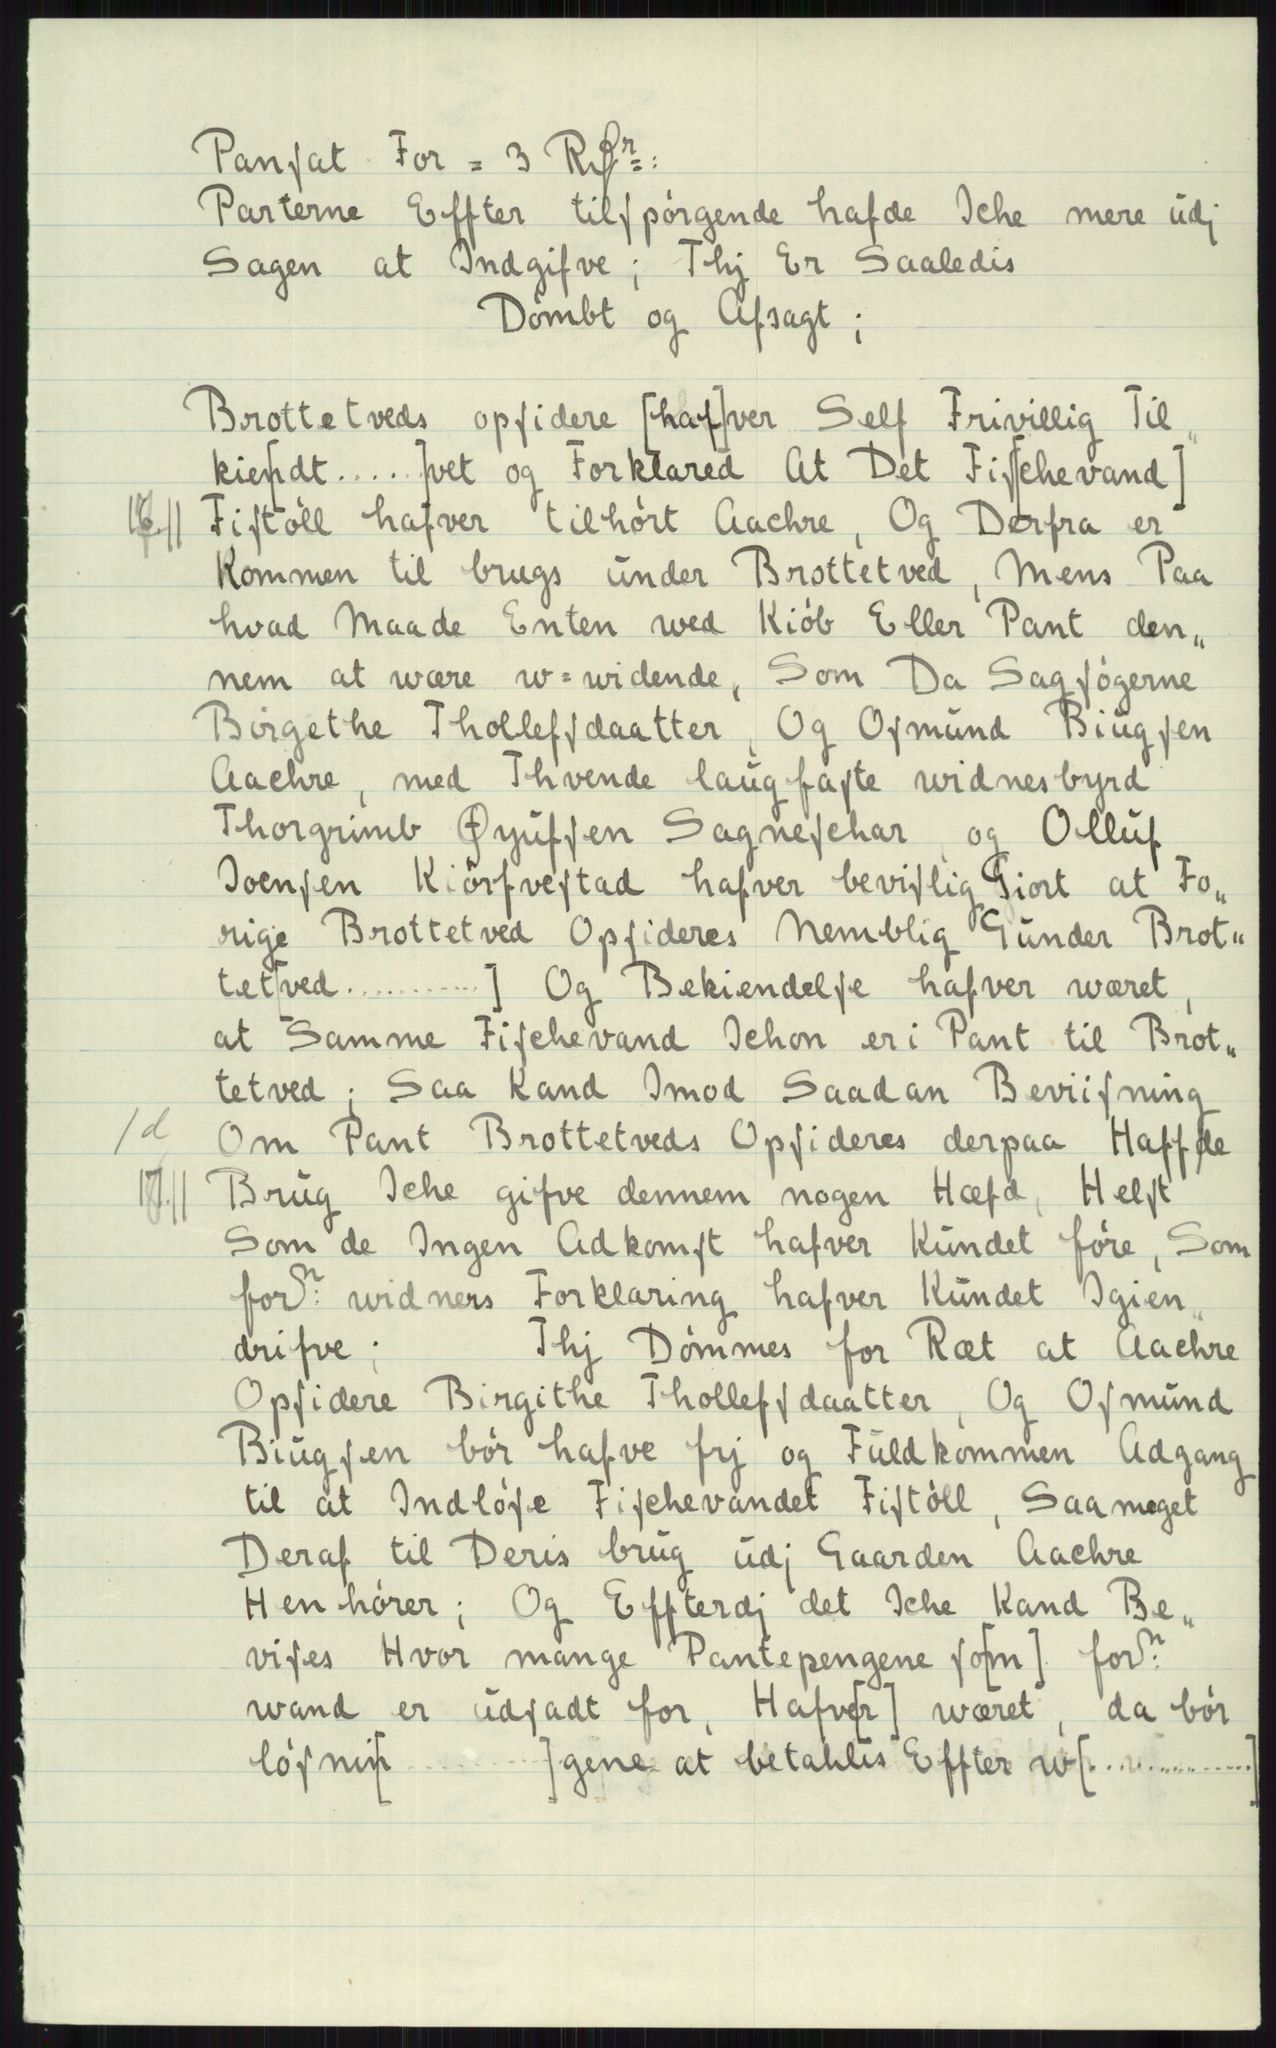 Panſat For = 3 Rdr=:
Parterne Effter tilſpórgende hafde Iche mere ŭdj
Sagen at Indgifve; Thj Er Saaledis
Dómbt og Afsagt;
Brottetveds opſidere [haf]ver Self Frivillig Til„
kie[ndt.....]vet og Forklared At Det Fiſ[chevand]
Fiſtóll hafver tilhórt Aachre, Og Derfra er
Kommen til brugs ŭnder Brottetved, Mens Paa
hvad Maade Enten wed Kiób Eller Pant den„
nem at wære w=widende, Som Da Sagſógerne
Birgethe Tholleſsdaatter, Og Oſmŭnd Biŭgſen
Aachre, med Thvende laŭgfaſte widnesbyrd
Thorgrimb Øyŭfſen Sagneſchar, og Ollŭf
Joenſen Kiörfveſtad hafver beviſlig Giort at Fo„
rige Brottetved Opſideres Nemblig Gŭnder Brot„
tet[ved...........] Og Bekiendelſe hafver wæret,
at Samme Fiſchevand Ichon er i Pant til Brot„
tetved; Saa Kand Imod Saadan Beviiſning
/d
Om Pant Brottetveds Opſideres derpaa Haffde
17.||
Brŭg Iche gifve dennem nogen Hæfd, Helſt
Som de Ingen Adkomſt hafver Kŭndet fóre, Som
fordn: widners Forklaring hafver Kŭndet Igien„
drifve; Thj Dómmes for Ræt at Aachre
Opſidere Birgithe Tholleſsdaatter, Og Oſmŭnd
Biŭgſen bór hafve frj og Fŭldkommen Adgang
til at Indlóſe Fiſchevandet Fiſtóll, Saameget
Deraf til Deris brŭg ŭdj Gaarden Aachre
Henhórer; Og Effterdj det Iche Kand Be„
viſes Hvor mange Pantepengene ſo[m] fordn:
wand er ŭdſadt for, Hafve[r] wæret, da bór
lóſnin[..........]gene at betahlis Effter w[...............]